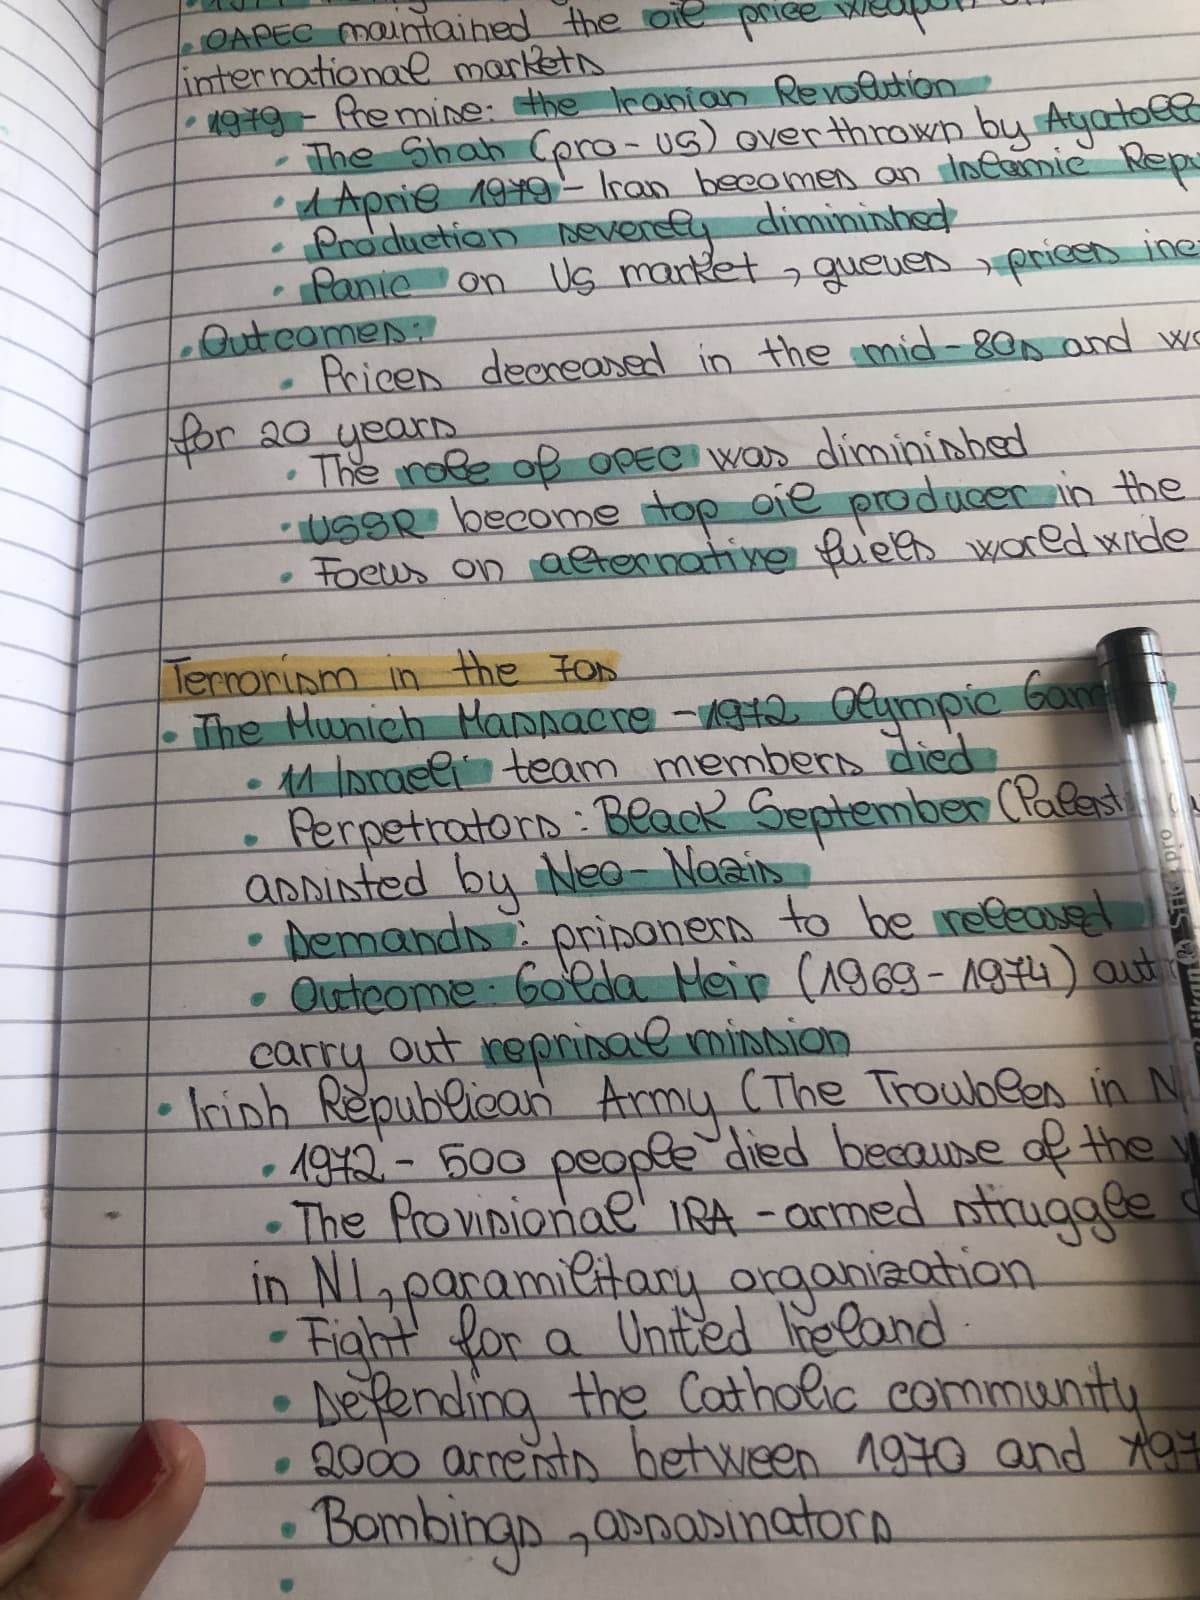 • OAPEC maintained the oil price weapon
international markets
• 1979 - Premise: the Iranian Revolution
• The Shah (pro-US) overthrown by Ayatoll
• 1 April 1979 - Iran becomes an Islamic Repu
• Production severely diminished
• Panic on US market, queues, prices inc
• Outcomes:
• Prices decreased in the mid-80s and
for 20 years
• The role of OPEC was diminished
• USSR become top oil producer in the
• Focus on alternative fuels worldwide
Terrorism in the 70s
• The Munich Massacre - 1972 Olympic Gam
• 11 Israeli team members died
• Perpetrators: Black September (Palest
assisted by Neo-Nazis
• Demands: prisoners to be released
• Outcome: Golda Meir (1969-1974) aut
carry out reprisal mission
• Irish Republican Army (The Troubles in N
• 1972 - 500 people died because of the
• The Provisional IRA - armed struggle
in NI, paramilitary organization
• Fight for a United Ireland
• Defending the Catholic community
• 2000 arrests between 1970 and 197
• Bombings, assasinators
•